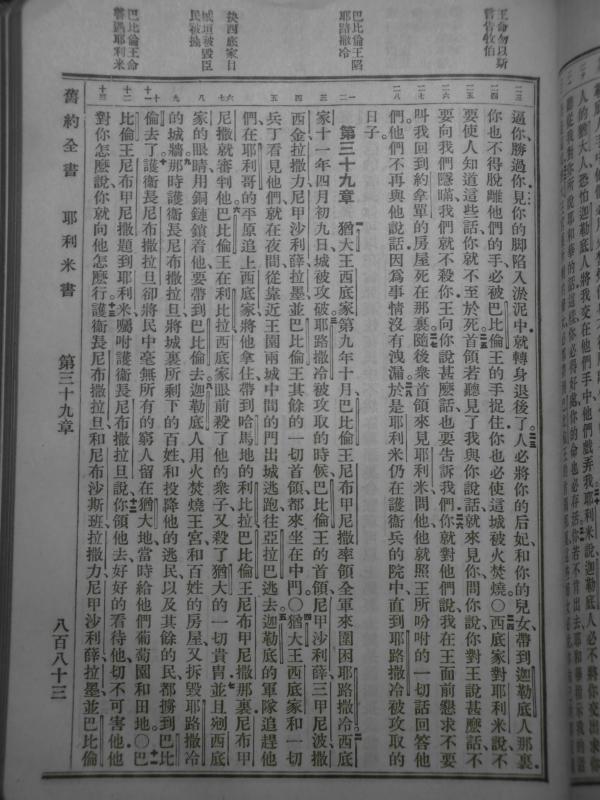 人的猶大人恐怕迦勒底人將我交在他們手中他們戲弄我耶利米說迦勒底人必不將你交出求你
聽從我對你所說耶和華的話這樣你必得好處你的命也必存活你若不肯出去耶和華指示我的話
王命勿以斯
言告牧伯
巴比倫王陷
耶路撒冷
抉西底家目
城垣被毀臣
民被擄
巴比倫王命
善遇耶利米
逼你勝過你見你的脚陷入淤泥中就轉身退後了二三人必將你的后妃和你的兒女帶到迦勒底人那裏
你也不得脫離他們的手必被巴比倫王的手捉住你也必使這城被火焚燒〇二四西底家對耶利米說不
要使人知道這些話你就不至於死二五首領若聽見了我與你說話就來見你問你說你對王說甚麼話不
要向我們隱瞞我們就不殺你王向你說甚麼話也要告訴我們二六你就對他們說我在王面前懇求不要
叫我回到約拿單的房屋死在那裏二七隨後衆首領來見耶利米問他他就照王所吩咐的一切話回答他
們他們不再與他說話因爲事情沒有洩漏二八於是耶利米仍在護衛兵的院中直到耶路撒冷被攻取的
日子
第三十九章 猶大王西底家第九年十月巴比倫王尼布甲尼撒率領全軍來圍困耶路撒冷二西底
家十一年四月初九日城被攻破三耶路撒冷被攻取的時候巴比倫王的首領尼甲沙利薛三甲尼波撒
西金拉撒力尼甲沙利薛拉墨並巴比倫王其餘的一切首領都來坐在中門〇四猶大王西底家和一切
兵丁看見他們就在夜間從靠近王園兩城中間的門出城逃跑往亞拉巴逃去五迦勒底的軍隊追趕他
們在耶利哥的平原追上西底家將他拿住帶到哈馬地的利比拉巴比倫王尼布甲尼撒那裏尼布甲
尼撒就審判他六巴比倫王在利比拉西底家眼前殺了他的衆子又殺了猶大的一切貴冑七並且剜西底
家的眼睛用銅鏈鎖着他要帶到巴比倫去八迦勒底人用火焚燒王宮和百姓的房屋又拆毀耶路撒冷
的城牆九那時護衛長尼布撒拉旦將城裏所剩下的百姓和投降他的逃民以及其餘的民都擄到巴比
倫去了十護衛長尼布撒拉旦卻將民中毫無所有的窮人留在猶大地當時給他們葡萄園和田地〇十一巴
比倫王尼布甲尼撒題到耶利米囑咐護衛長尼布撒拉旦說十二你領他去好好的看待他切不可害他他
對你怎麼說你就向他怎麼行十三護衛長尼布撒拉旦和尼布沙斯班拉撒力尼甲沙利薛拉墨並巴比倫
舊約全書 耶利米書 第三十九章 八百八十三